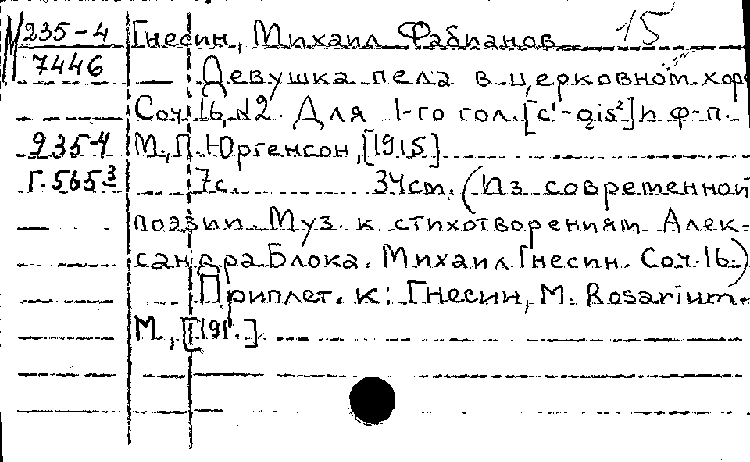 15
235-4 Гнесин, Михаил Фабианов
7446 — Девушка пела в церковном хоре
Соч. 16, №2. Для 1-го гол. [c¹-gis²] и ф-п.
935-4 М., П. Юргенсон, [1915]
Г.565³ 7с. 34см. (Из современной
поэзии. Муз. к стихотворениям Алек-
сандра Блока. Михаил Гнесин. Соч. 16.)
Приплет. к: Гнесин, М. Rosarium.
М., [191 .]